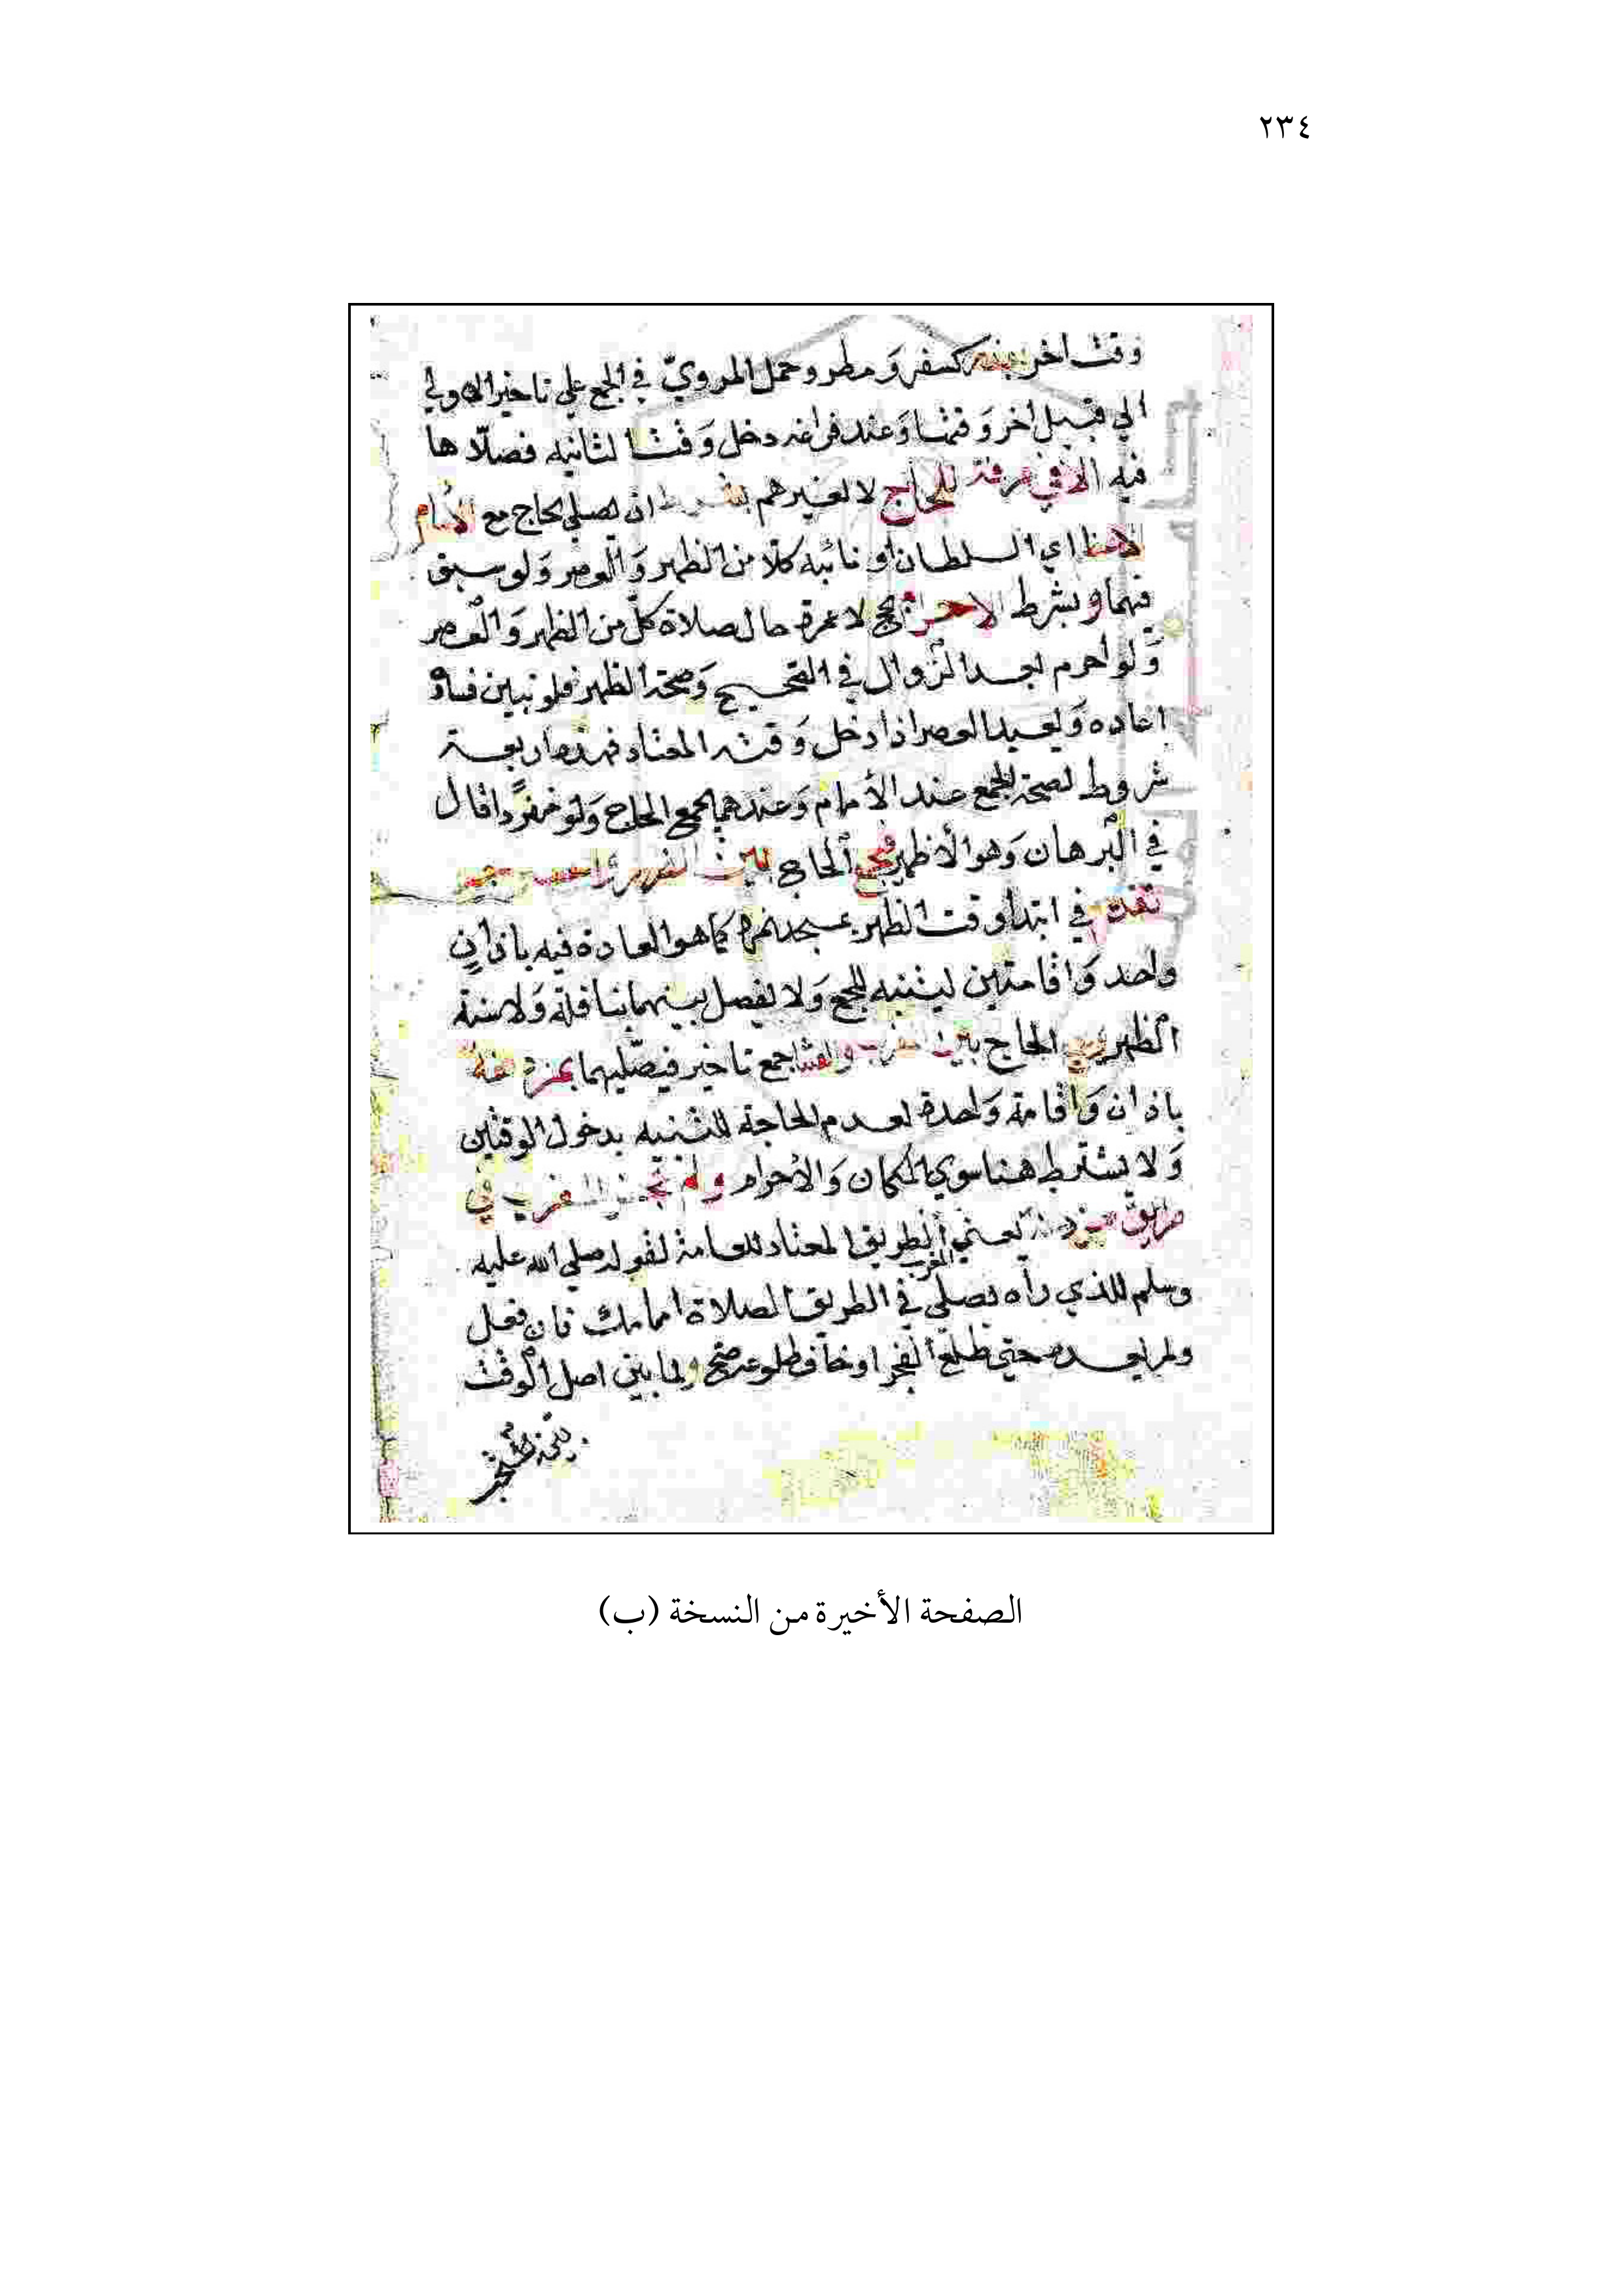 ٢٣٤
وقت اخر بعذر كسفر وَمطر وحمل المرويّ في الجمع علي تاخير الاولي
الي قبيل اخر وَقتها وَعند فراغه دخل وَقت الثانيه فصلّاها
فيه الا في عرفة للحاج لا لغيرهم بشرط ان يصلي الحاج مع الامام
الاعظم اي السلطان او نائبه كلا من الظهر وَالعصر وَلو سبق
فيهما وبشرط الاحرام بحج لا عمرة حال صلاة كلّ من الظهر وَالعصر
وَلو احرم بعد الزوال في الصحيح وَصحة الظهر فلو تبين فساده
اعاده وَيعيد العصر اذا دخل وَقته المعتاد فهذه اربعة
شروط لصحة الجمع عند الأمام وَعندهما يجمع الحاج وَلو منفردًا قال
في البرهان وَهو الأظهر فيجمع الحاج بين الظهر والعصر جمع
تقديم في ابتدا وقت الظهر بمسجد نمرة كما هو العادة فيه باذان
واحد وَاقامتين ليتنبه للجمع وَلا يفصل بينهما بنافلة وَلا سنة
الظهر ويجمع الحاج بين المغرب والعشا جمع تاخير فيصليهما بمزدلفة
باذان وَاقامة وَاحدة لعدم الحاجة للتنبيه بدخول الوقتين
وَلا يشترط هنا سوي المكان وَالأحرام ولم تجز المغرب في
طريق مزدلفة يعني الطريق المعتاد للعامة لقوله صلي الله عليه
وسلم للذي رآه يصلي المغرب في الطريق الصلاة امامك فان فعل
ولم يعده حتي طلع الفجر او خاف طلوعه صح ولما بين اصل الوقت
الصفحة الأخيرة من النسخة (ب)